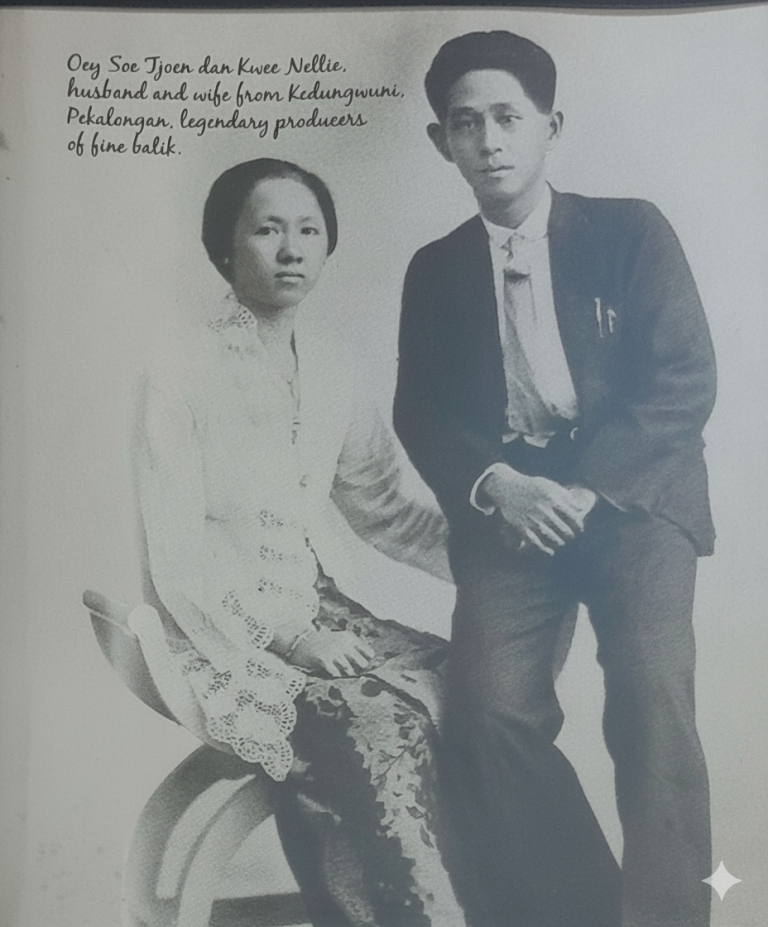 Oey Soe Tjoen dan Kwee Nellie,
husband and wife from Kedungwuni,
Pekalongan, legendary producers
of fine batik.